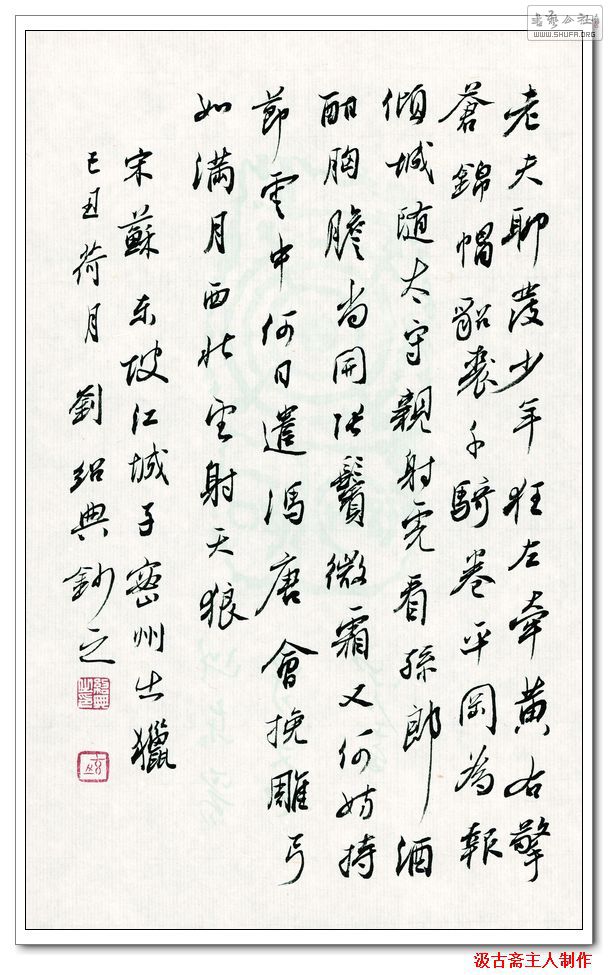 書藝公社
WWW.SHUFA.ORG
老夫聊發少年狂左牽黄右擎
蒼錦帽貂裘千騎卷平岡為報
傾城随太守親射虎看孫郎酒
酣胸膽尚開張鬢微霜又何妨持
節雲中何日遣馮唐會挽雕弓
如满月西北望射天狼
宋蘇东坡江城子密州出獵
己丑荷月劉紹典鈔之
汲古斋主人制作